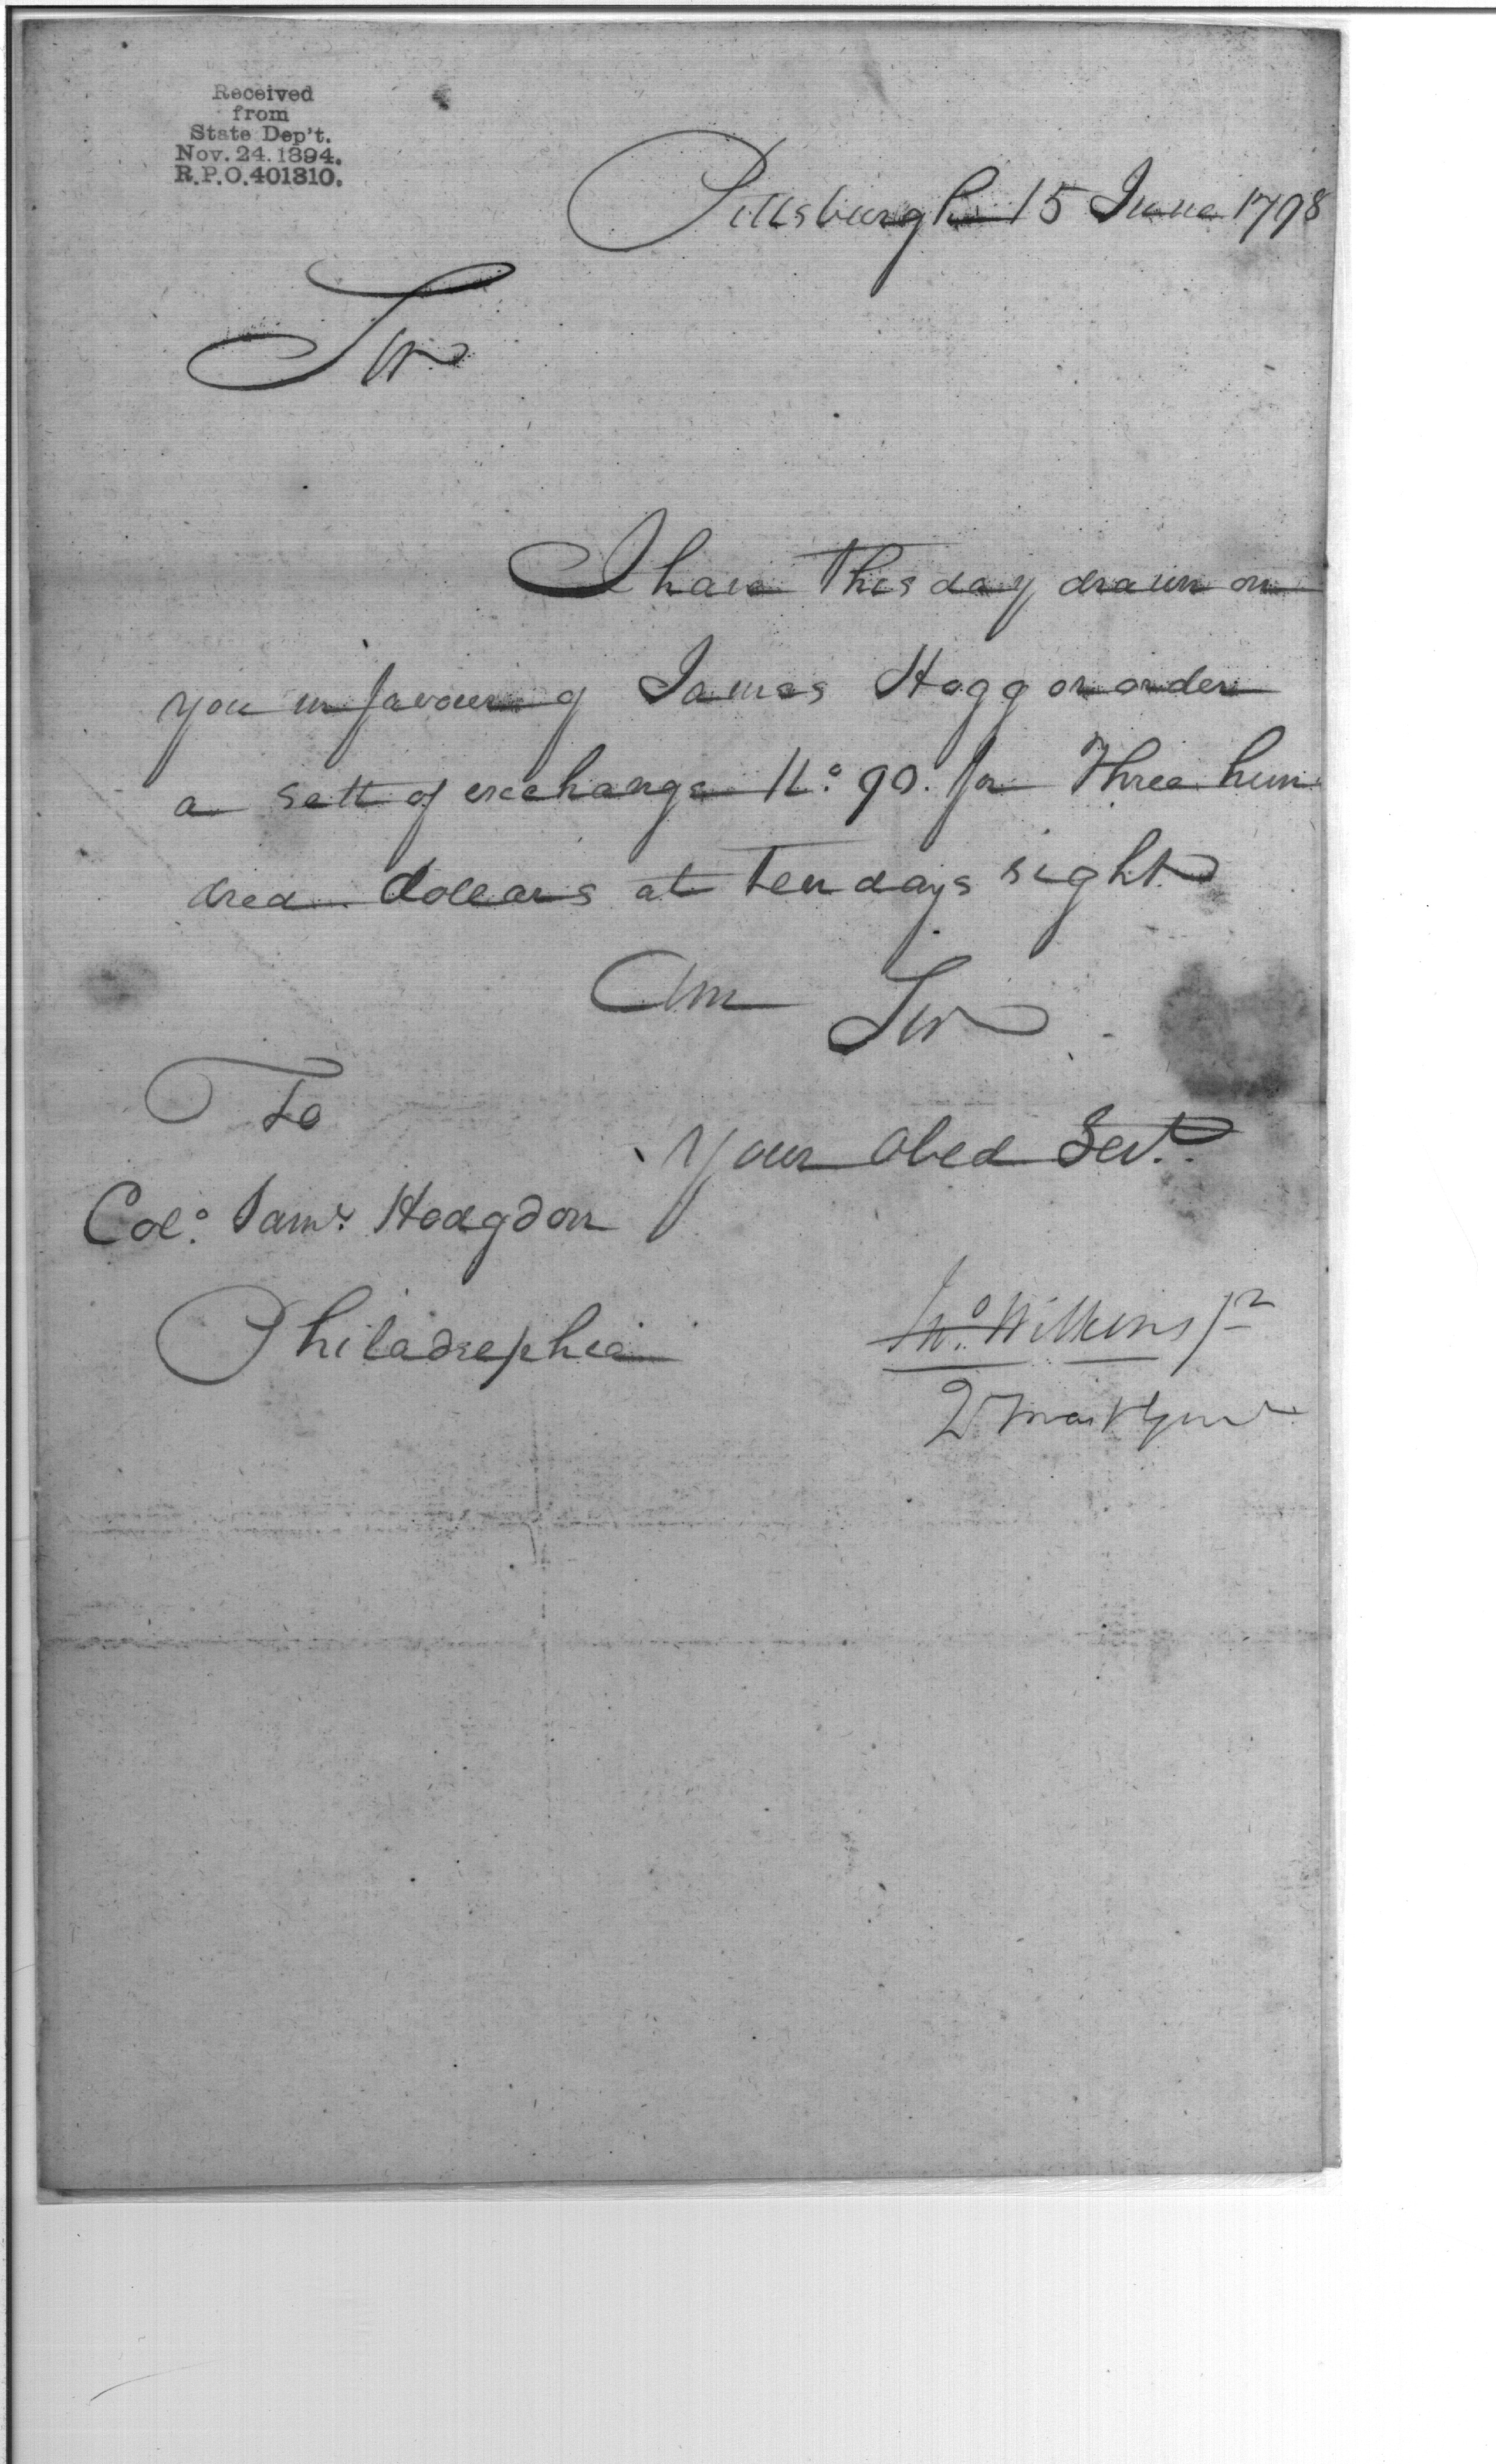 Received
from
State Dep't.
Nov. 24. 1894.
R.P.O. 401310.
Pittsburgh 15 June 1798
Sir
I have this day drawn on
you in favour of James Hogg or order
a sett of exchange No. 90. for Three hun
dred dollars at Ten days sight
Am Sir
To
Your obed Servt.
Colo. Saml. Hodgdon
Philadelphia
Jno. Wilkins Jr
Q M Genl